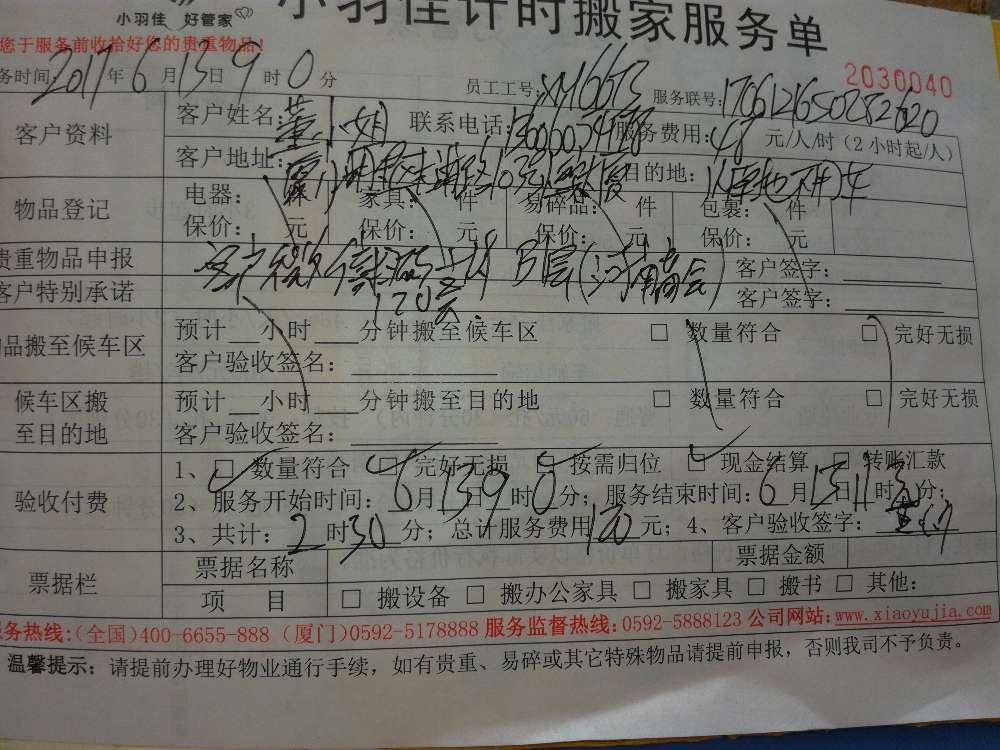 小羽佳 好管家
小羽佳计时搬家服务单
您于服务前收拾好您的贵重物品!
务时间: 2017年6月13日9时0分 员工工号: XM6613 服务联号:
2030040
客户资料 客户姓名: 董小姐 联系电话: 服务费用: 48 元/人/时（2小时起/人）
客户地址: 目的地:
物品登记 电器: 家具: 件 易碎品: 件 包裹: 件
保价: 元 保价: 元 保价: 元 保价: 元
贵重物品申报 客户签字:
客户特别承诺 120元 客户签字:
物品搬至候车区 预计__小时___分钟搬至候车区 □ 数量符合 □ 完好无损
客户验收签名:
候车区搬至目的地 预计__小时___分钟搬至目的地 □ 数量符合 □ 完好无损
客户验收签名:
验收付费 1、☑ 数量符合 ☑ 完好无损 ☑ 按需归位 ☑ 现金结算 □ 转账汇款
2、服务开始时间: 6月13日9时0分; 服务结束时间: 6月13日11时30分;
3、共计: 2时30分; 总计服务费用120元; 4、客户验收签字:
票据栏 票据名称 票据金额
项 目 □ 搬设备 □ 搬办公家具 □ 搬家具 □ 搬书 □ 其他:
服务热线:(全国)400-6655-888 (厦门)0592-5178888 服务监督热线: 0592-5888123 公司网站: www.xiaoyujia.com
温馨提示: 请提前办理好物业通行手续，如有贵重、易碎或其它特殊物品请提前申报，否则我司不予负责。